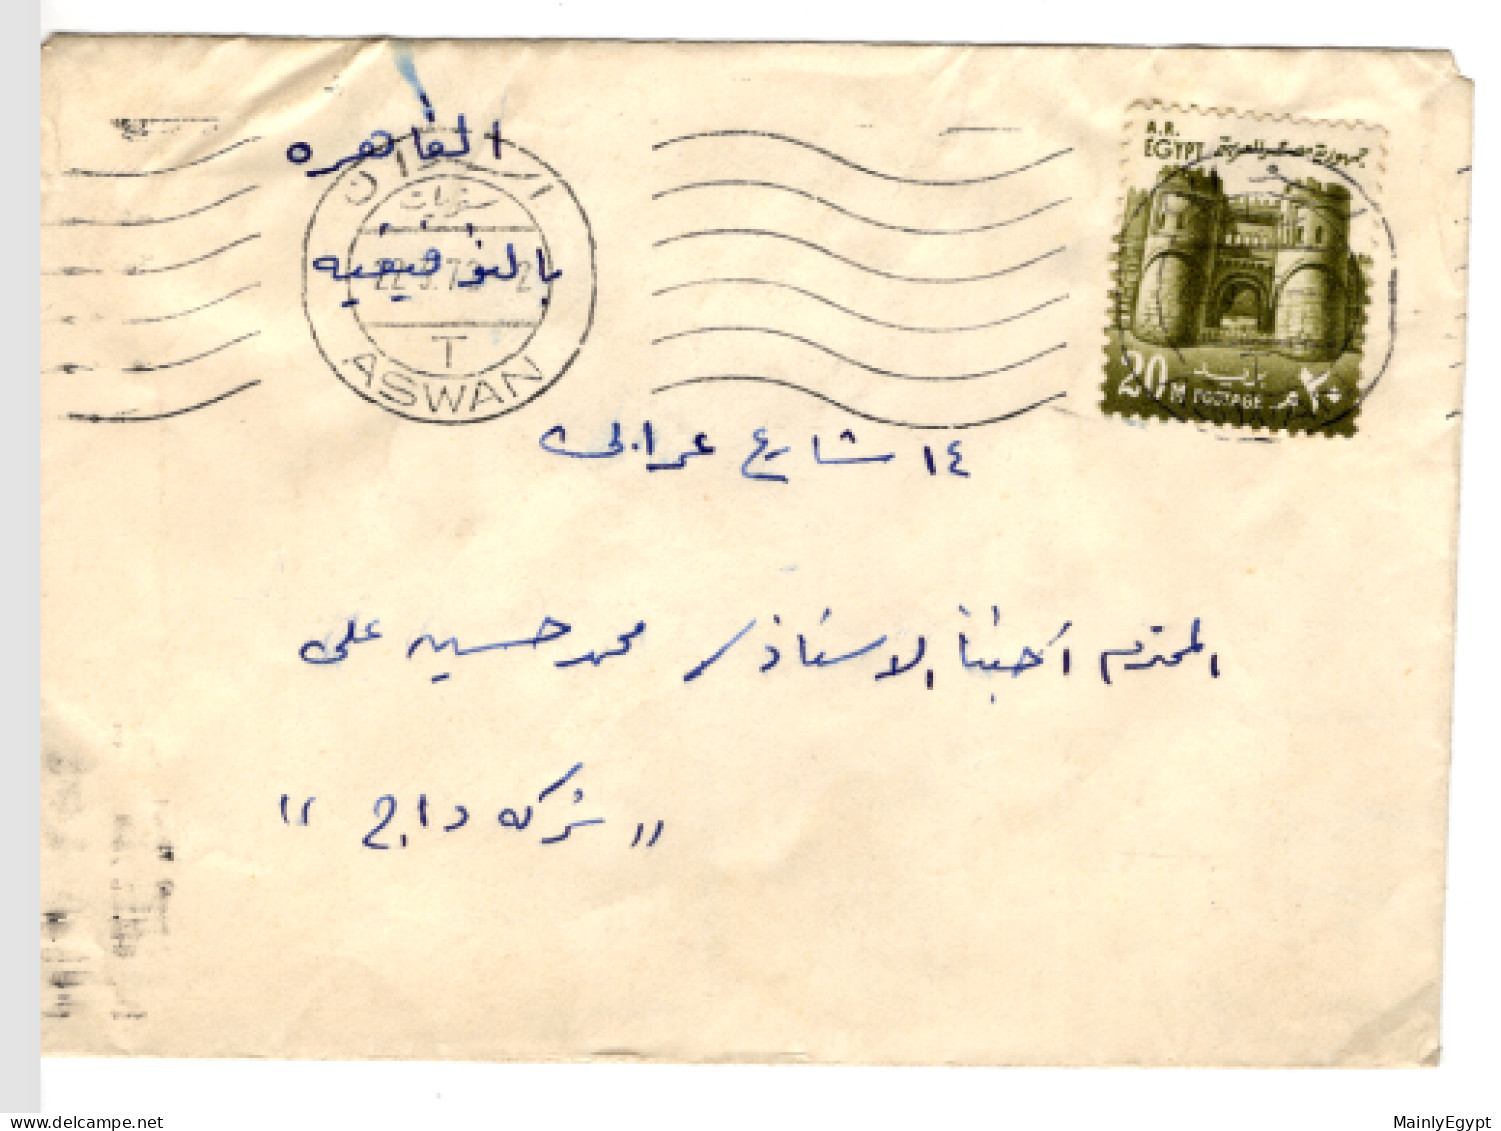 القاهره
بالتوفيقيه
اسوان
ASWAN
T
A.R.
EGYPT جمهورية مصر العربية
20M POSTAGE بريد ٢٠ م
١٤ شارع عرابى
المحترم اخينا الاستاذ / محمد حسين على
" شركه داج "
delcampe.net
MainlyEgypt